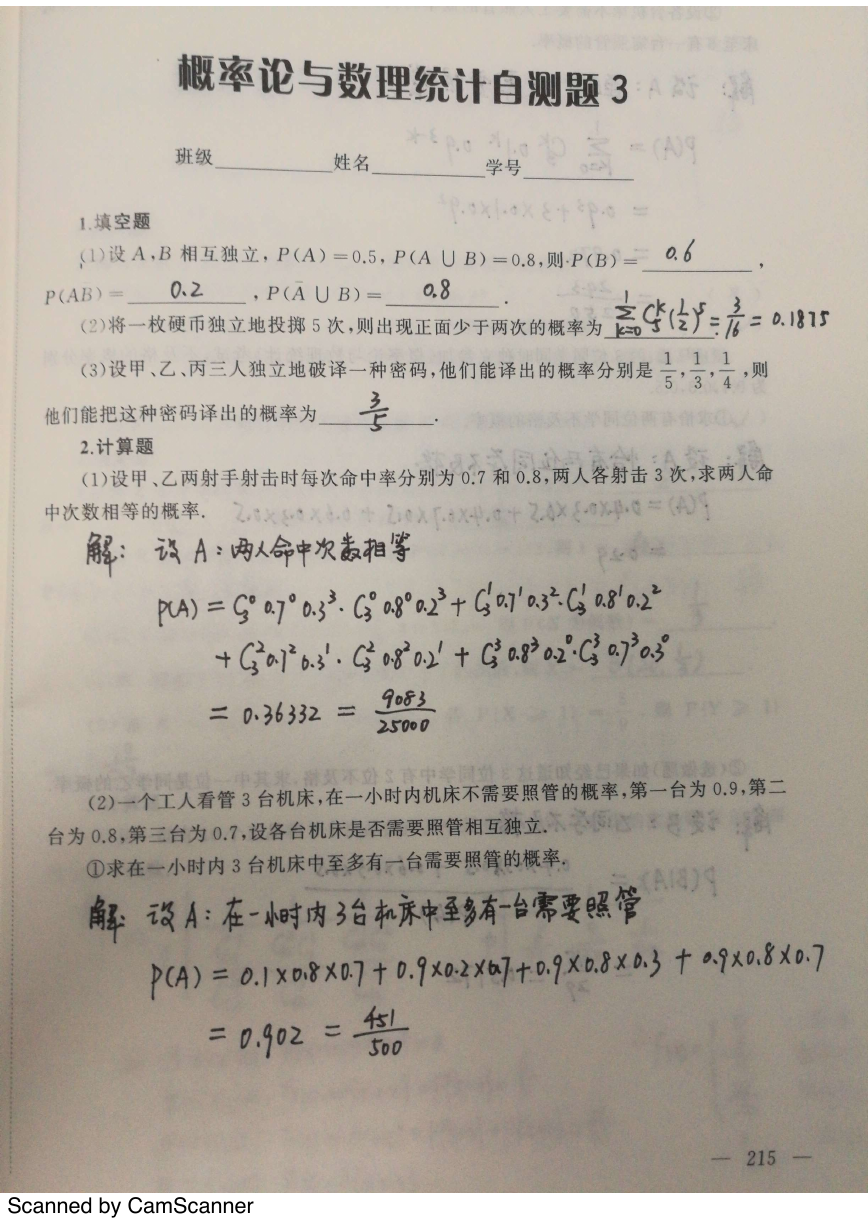 概率论与数理统计自测题 3
班级 姓名 学号
1.填空题
(1)设 A,B 相互独立,P(A)=0.5,P(A∪B)=0.8,则 P(B)= 0.6 ,
P(AB)= 0.2 ,P(Ā∪B)= 0.8 .
(2)将一枚硬币独立地投掷 5 次,则出现正面少于两次的概率为 \sum_{k=0}^{1} C_5^k (1/2)^5 = 3/16 = 0.1875 .
(3)设甲、乙、丙三人独立地破译一种密码,他们能译出的概率分别是 1/5,1/3,1/4,则
他们能把这种密码译出的概率为 3/5 .
2.计算题
(1)设甲、乙两射手射击时每次命中率分别为 0.7 和 0.8,两人各射击 3 次,求两人命
中次数相等的概率.
解: 设 A:两人命中次数相等
P(A) = C_3^0 0.7^0 0.3^3 · C_3^0 0.8^0 0.2^3 + C_3^1 0.7^1 0.3^2 · C_3^1 0.8^1 0.2^2
+ C_3^2 0.7^2 0.3^1 · C_3^2 0.8^2 0.2^1 + C_3^3 0.8^3 0.2^0 · C_3^3 0.7^3 0.3^0
= 0.36332 = 9083/25000
(2)一个工人看管 3 台机床,在一小时内机床不需要照管的概率,第一台为 0.9,第二
台为 0.8,第三台为 0.7,设各台机床是否需要照管相互独立.
①求在一小时内 3 台机床中至多有一台需要照管的概率.
解: 设 A:在一小时内 3台机床中至多有一台需要照管
P(A) = 0.1×0.8×0.7 + 0.9×0.2×0.7 + 0.9×0.8×0.3 + 0.9×0.8×0.7
= 0.902 = 451/500
— 215 —
Scanned by CamScanner